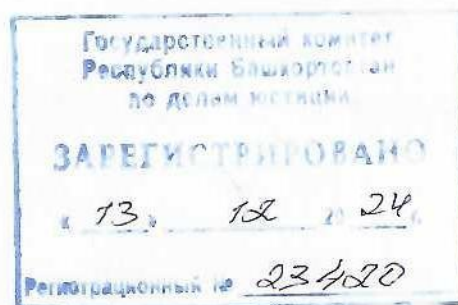 Государственный комитет
Республики Башкортостан
по делам юстиции
ЗАРЕГИСТРИРОВАНО
« 13 » 12 20 24 г.
Регистрационный № 23420